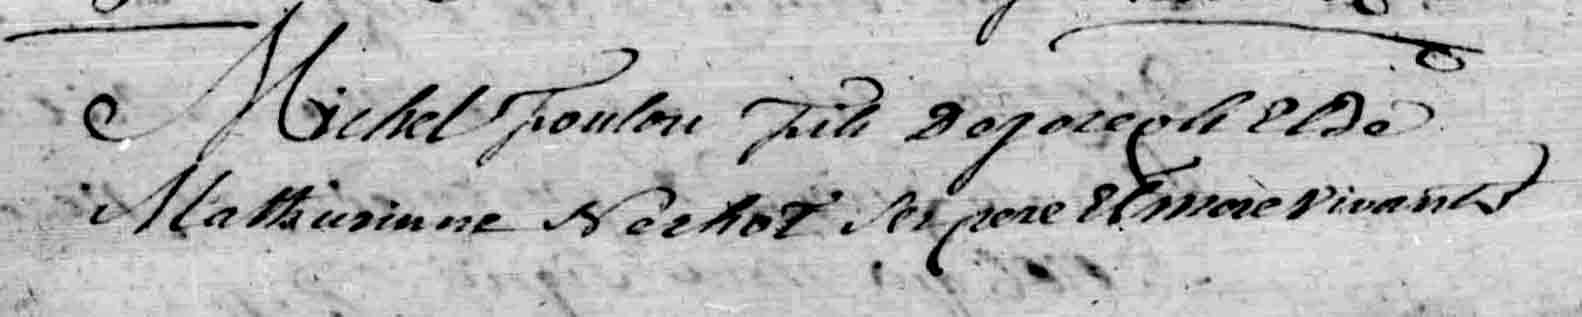 Michel foulon fils De joseph Et De
Mathurinne Nerhot ses pere Et mere vivants